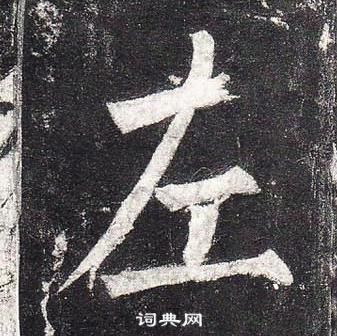 左
词典网